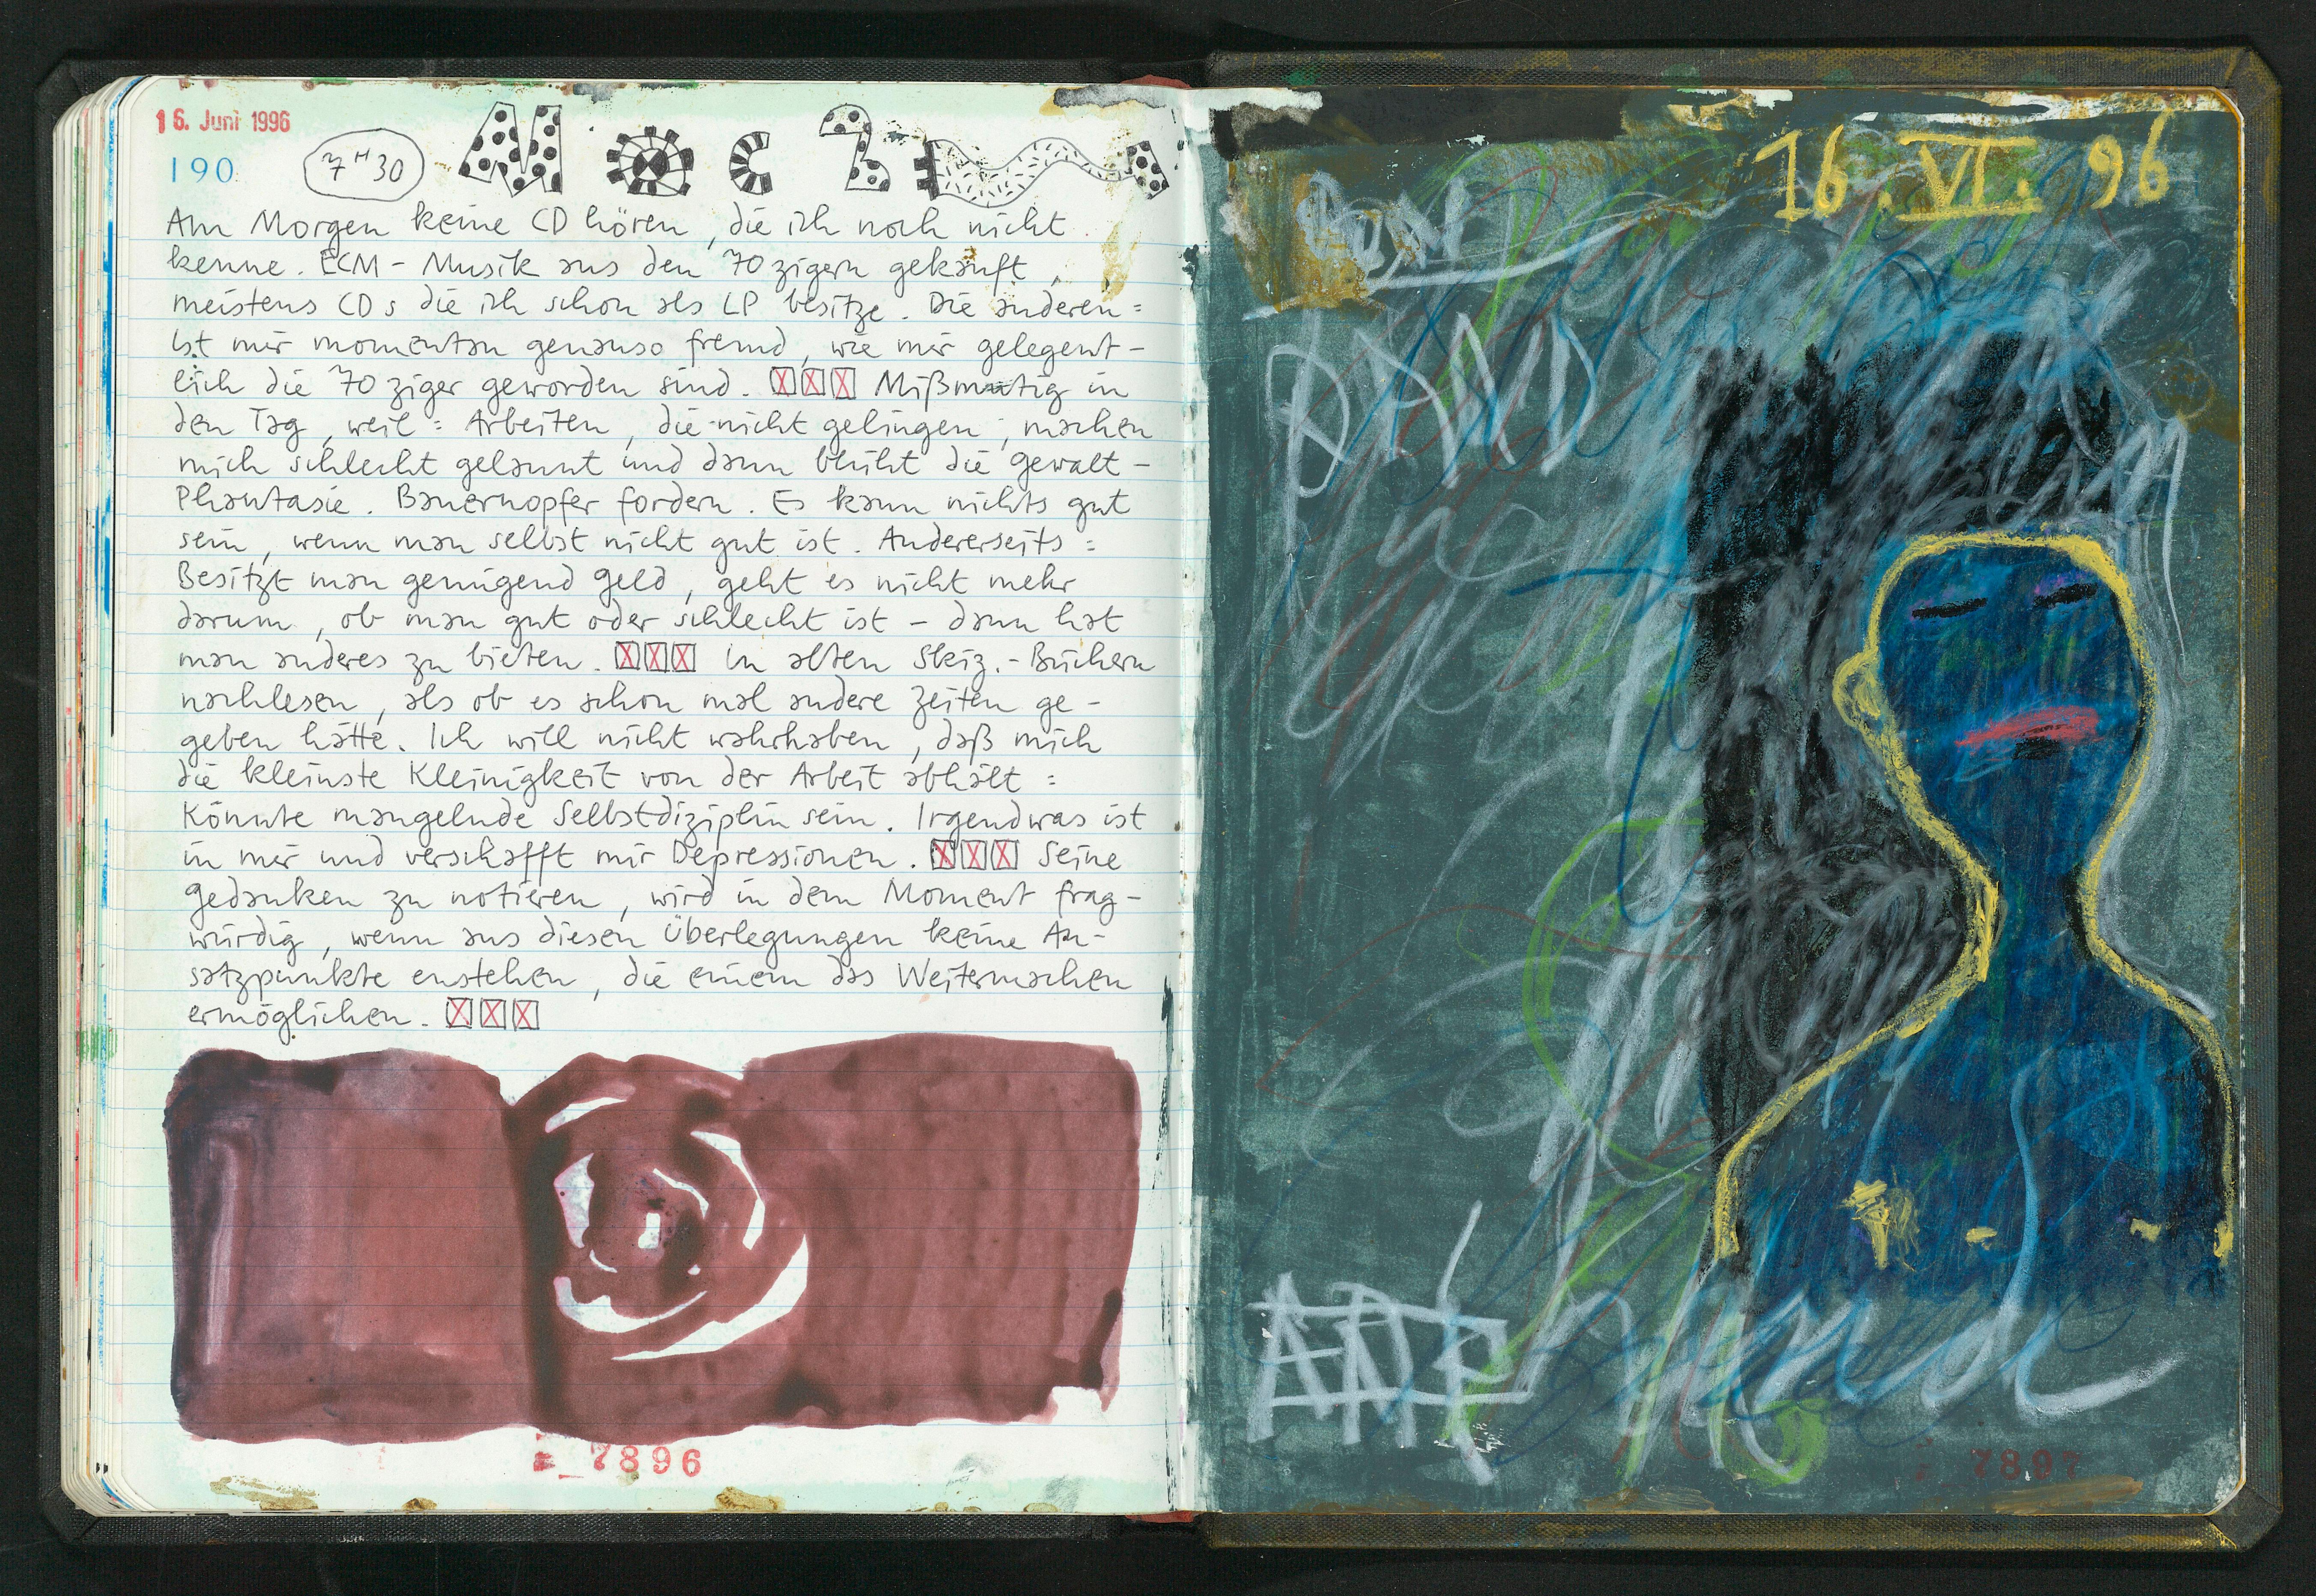 16. Juni 1996
190
7 H 30
Am Morgen keine CD hören, die ich noch nicht
kenne. ECM-Musik aus den 70zigern gekauft,
meistens CDs die ich schon als LP besitze. Die anderen =
Ist mir momentan genauso fremd, wie mir gelegent-
lich die 70ziger geworden sind. XXX Mißmutig in
den Tag, weil = Arbeiten, die nicht gelingen, machen
mich schlecht gelaunt und dann blüht die Gewalt-
Phantasie. Bauernopfer fordern. Es kann nichts gut
sein, wenn man selbst nicht gut ist. Andererseits =
Besitzt man genügend Geld, geht es nicht mehr
darum, ob man gut oder schlecht ist – dann hat
man anderes zu bieten. XXX In alten Skiz.-Büchern
nachlesen, als ob es schon mal andere Zeiten ge-
geben hätte. Ich will nicht wahrhaben, daß mich
die kleinste Kleinigkeit von der Arbeit abhält =
Könnte mangelnde Selbstdiziplin sein. Irgendwas ist
in mir und verschafft mir Depressionen. XXX Seine
Gedanken zu notieren, wird in dem Moment frag-
würdig, wenn aus diesen Überlegungen keine An-
satzpunkte enstehen, die einem das Weitermachen
ermöglichen. XXX
7896
16. VI. 96
7897